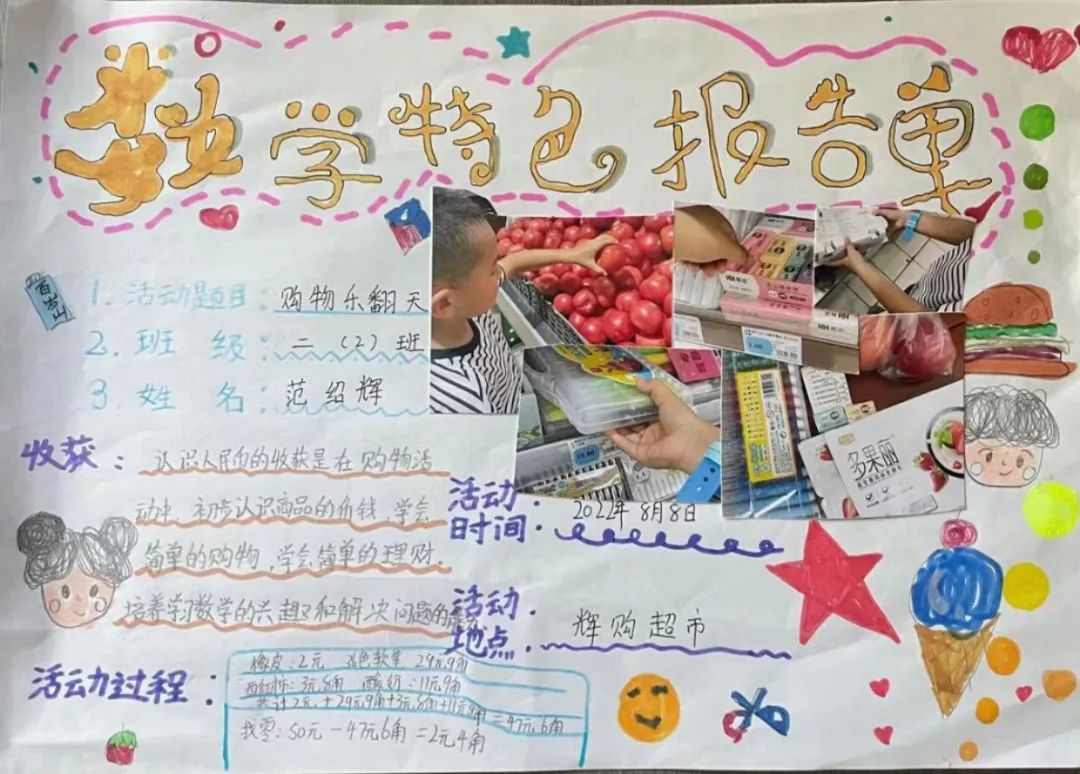 数学特色报告单
1. 活动题目：购物乐翻天
2. 班 级：二（2）班
3. 姓 名：范绍辉
收获：认识人民币的收获是在购物活
动中,初步认识商品的价钱,学会
简单的购物,学会简单的理财.
培养学习数学的兴趣和解决问题的能力
活动
时间：2022年8月8日
活动
地点.辉购超市
活动过程：
橡皮:2元 色软笔 29元9角
西红柿:3元8角 酸奶:11元9角
共计2元+29元9角+3元8角+11元9角=47元6角
找零:50元-47元6角=2元4角
多果丽